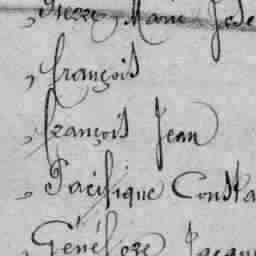 , Pierre Marie Jose
, françois
, françois Jean
, Pacifique Consta
, Généfore Jacqu